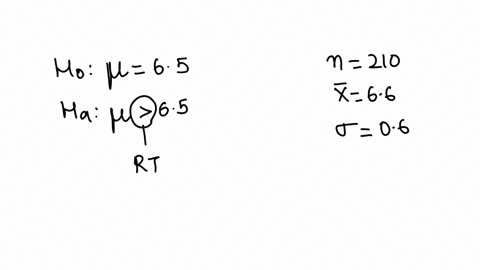 H₀: μ = 6.5
Hа: μ > 6.5
RT
n = 210
x̄ = 6.6
σ = 0.6